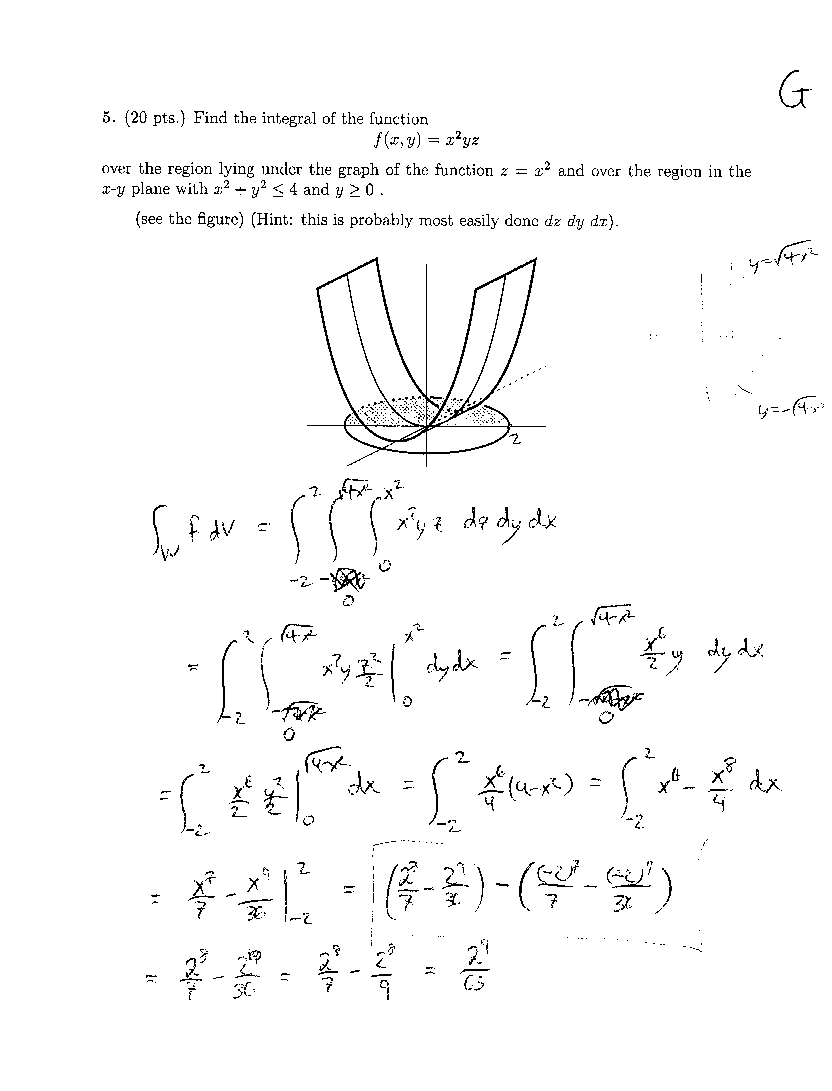 G
5. (20 pts.) Find the integral of the function
f(x, y) = x²yz
over the region lying under the graph of the function z = x² and over the region in the
x-y plane with x² + y² ≤ 4 and y ≥ 0 .
(see the figure) (Hint: this is probably most easily done dz dy dx).
y=√4-x²
2
∫_W f dV = ∫_{-2}^{2} ∫_{0}^{√4-x²} ∫_{0}^{x²} x²yz dz dy dx
= ∫_{-2}^{2} ∫_{0}^{√4-x²} x²y z²/2 |_{0}^{x²} dy dx = ∫_{-2}^{2} ∫_{0}^{√4-x²} x⁶/2 y dy dx
= ∫_{-2}^{2} x⁶/2 y²/2 |_{0}^{√4-x²} dx = ∫_{-2}^{2} x⁶/4 (4-x²) = ∫_{-2}^{2} x⁶ - x⁸/4 dx
= x⁷/7 - x⁹/36 |_{-2}^{2} = (2⁷/7 - 2⁹/36) - ((-2)⁷/7 - (-2)⁹/36)
= 2⁸/7 - 2¹⁰/36 = 2⁸/7 - 2⁸/9 = 2⁹/63